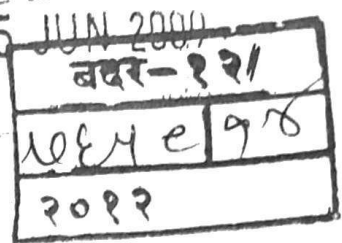 5 JUN 2000
बदर-१२/
५६५९ १४
२०१२